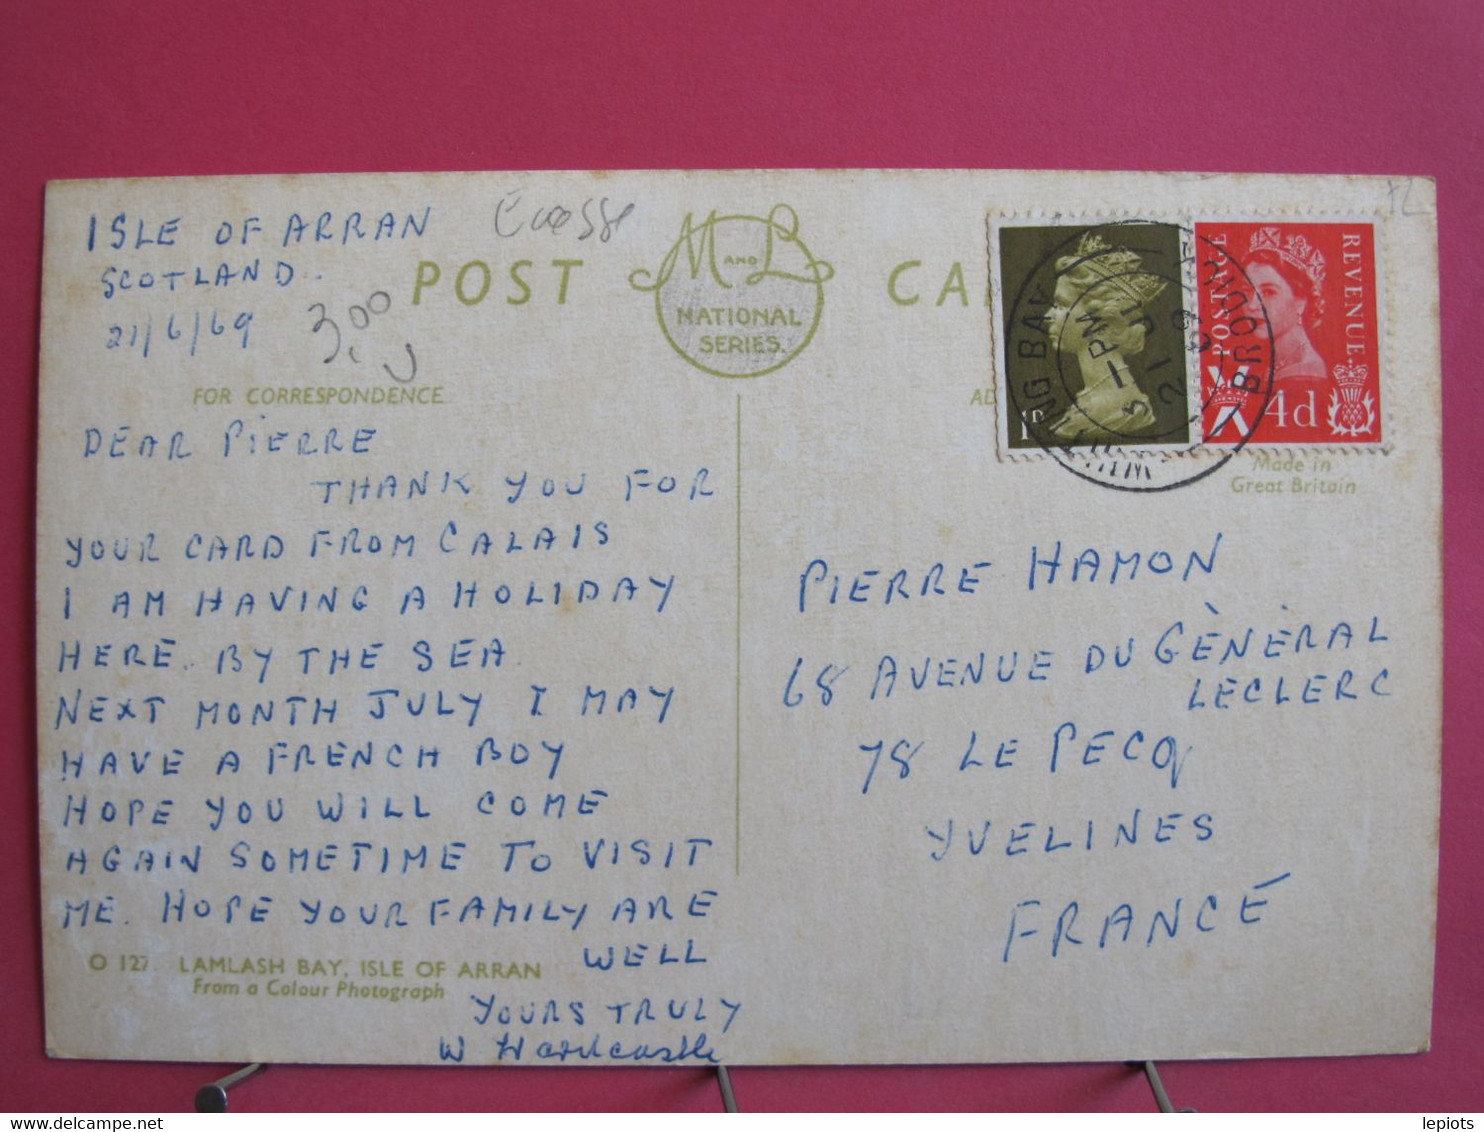 ISLE OF ARRAN
SCOTLAND.
21/6/69
Ecosse
3,00
POST CA
M AND L
NATIONAL
SERIES.
FOR CORRESPONDENCE
AD
DEAR PIERRE
THANK YOU FOR
YOUR CARD FROM CALAIS
I AM HAVING A HOLIDAY
HERE. BY THE SEA
NEXT MONTH JULY I MAY
HAVE A FRENCH BOY
HOPE YOU WILL COME
AGAIN SOMETIME TO VISIT
ME. HOPE YOUR FAMILY ARE
WELL
O 127. LAMLASH BAY, ISLE OF ARRAN
From a Colour Photograph
YOURS TRULY
W Hardcastle
POSTAGE
REVENUE
4d
1P
NG BAY
BRODICK
3-PM
21 JU
69
Made in
Great Britain
PIERRE HAMON
68 AVENUE DU GÈNÈRAL
LECLERC
78 LE PECQ
YVELINES
FRANCE
lepiots